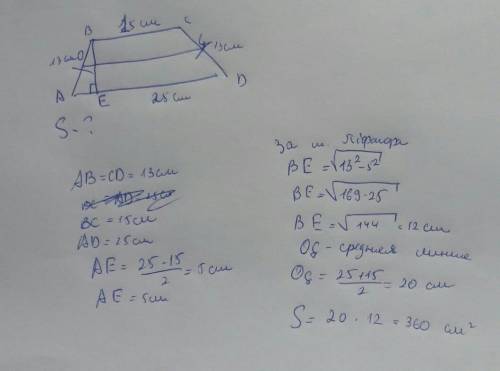 B 15 см C
13 см O G 13 см
A E 25 см D
S - ?
AB = CD = 13 см
BC = 15 см
AD = 25 см
AE = 25 - 15 / 2 = 5 см
AE = 5 см
За т. Піфагора
BE = √13² - 5²
BE = √169 - 25
BE = √144 = 12 см
Og - средняя линия
Og = 25 + 15 / 2 = 20 см
S = 20 · 12 = 360 см²